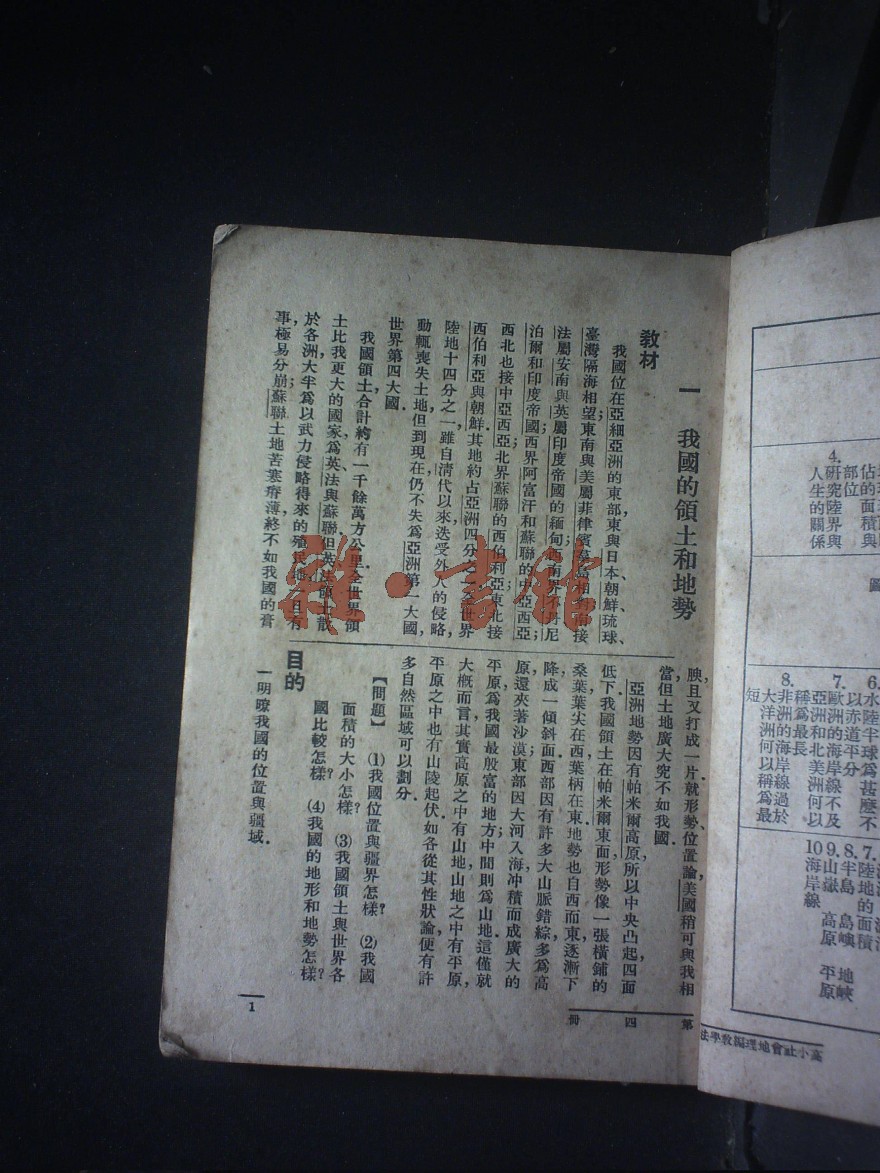 一 我國的領土和地勢
教材
我國位在亞細亞洲的東部，東與日本、朝鮮、琉球、
臺灣隔海相望；東南與美屬菲律賓羣島相對；南接
法屬安南與英屬印度帝國的緬甸；西南界不丹、尼
泊爾和印度帝國；西界阿富汗和蘇聯的中亞西亞；
西北也接中亞西亞；北界蘇聯的西伯利亞；東北接
西伯利亞與朝鮮。其地約占亞洲四分之一，世界
陸地十四分之一，雖自清代以來，迭受外人的侵略，
動輒喪失土地，但到現在，仍不失為亞洲第一大國，
世界第四大國．
我國領土合計約有一千餘萬方公里．全世界領
土比我更大的國家，為英、法與蘇聯．但英法領土散
於各洲，大半為以武力侵略得來的殖民地，一旦有
事，極易分崩；蘇聯土地苦塞瘠薄，終不如我國的膏
腴，且又打成一片．就形勢、位置論，美國稍可與我相
當，但土地廣大，究不如我國．
亞洲地勢，因有帕米爾高原，所以中央凸起，四面
低下．我國領土在帕米爾東面，形勢像一張橫鋪的
桑葉，葉尖在西，葉柄在東，地勢也自西而東，逐漸下
降，成一傾斜面．西部因有許多大山脈錯綜，多為高
原，還夾著沙漠；東部因大河入海，沖積而成廣大的
平原，為我國最殷富的地方；中間則為山地．這僅就
大概而言，其實高原之中有山地，山地之中有平原，
平原之中也有山陵起伏，如各從其性狀論，便有許
多自然區域可以劃分．
【問題】 (1)我國位置與疆界怎樣？ (2)我國
面積的大小怎樣？ (3)我國領土與世界各
國比較怎樣？ (4)我國的地形和地勢怎樣？
目的
一 明瞭我國的位置與疆域．
第四冊
1
高小社會地理編教學法
4.
研究陸界與
人生的關係
圖
6.
水陸半球為甚麼不
以赤道平分
7.
歐洲的海岸線不及
亞洲和北美洲何以
稱為最長
8.
非洲的海岸線過於
大洋洲何以稱為最
短
7.
陸地的面積
8.
半島 島嶼 地峽
9.
山嶽 高原 平原
10
海岸線
雜·書館